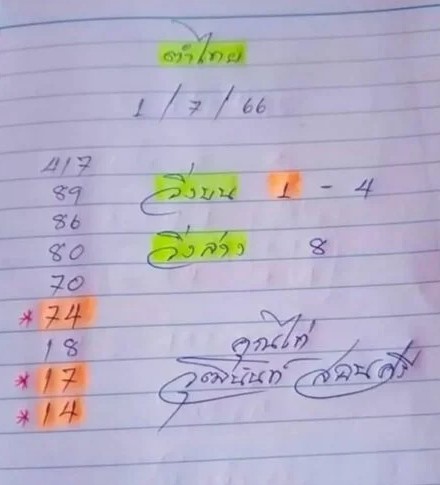 คำไทย
1 / 7 / 66
417
89 วิ่งบน 1 - 4
86
80 วิ่งล่าง 8
70
* 74
18
* 17
* 14